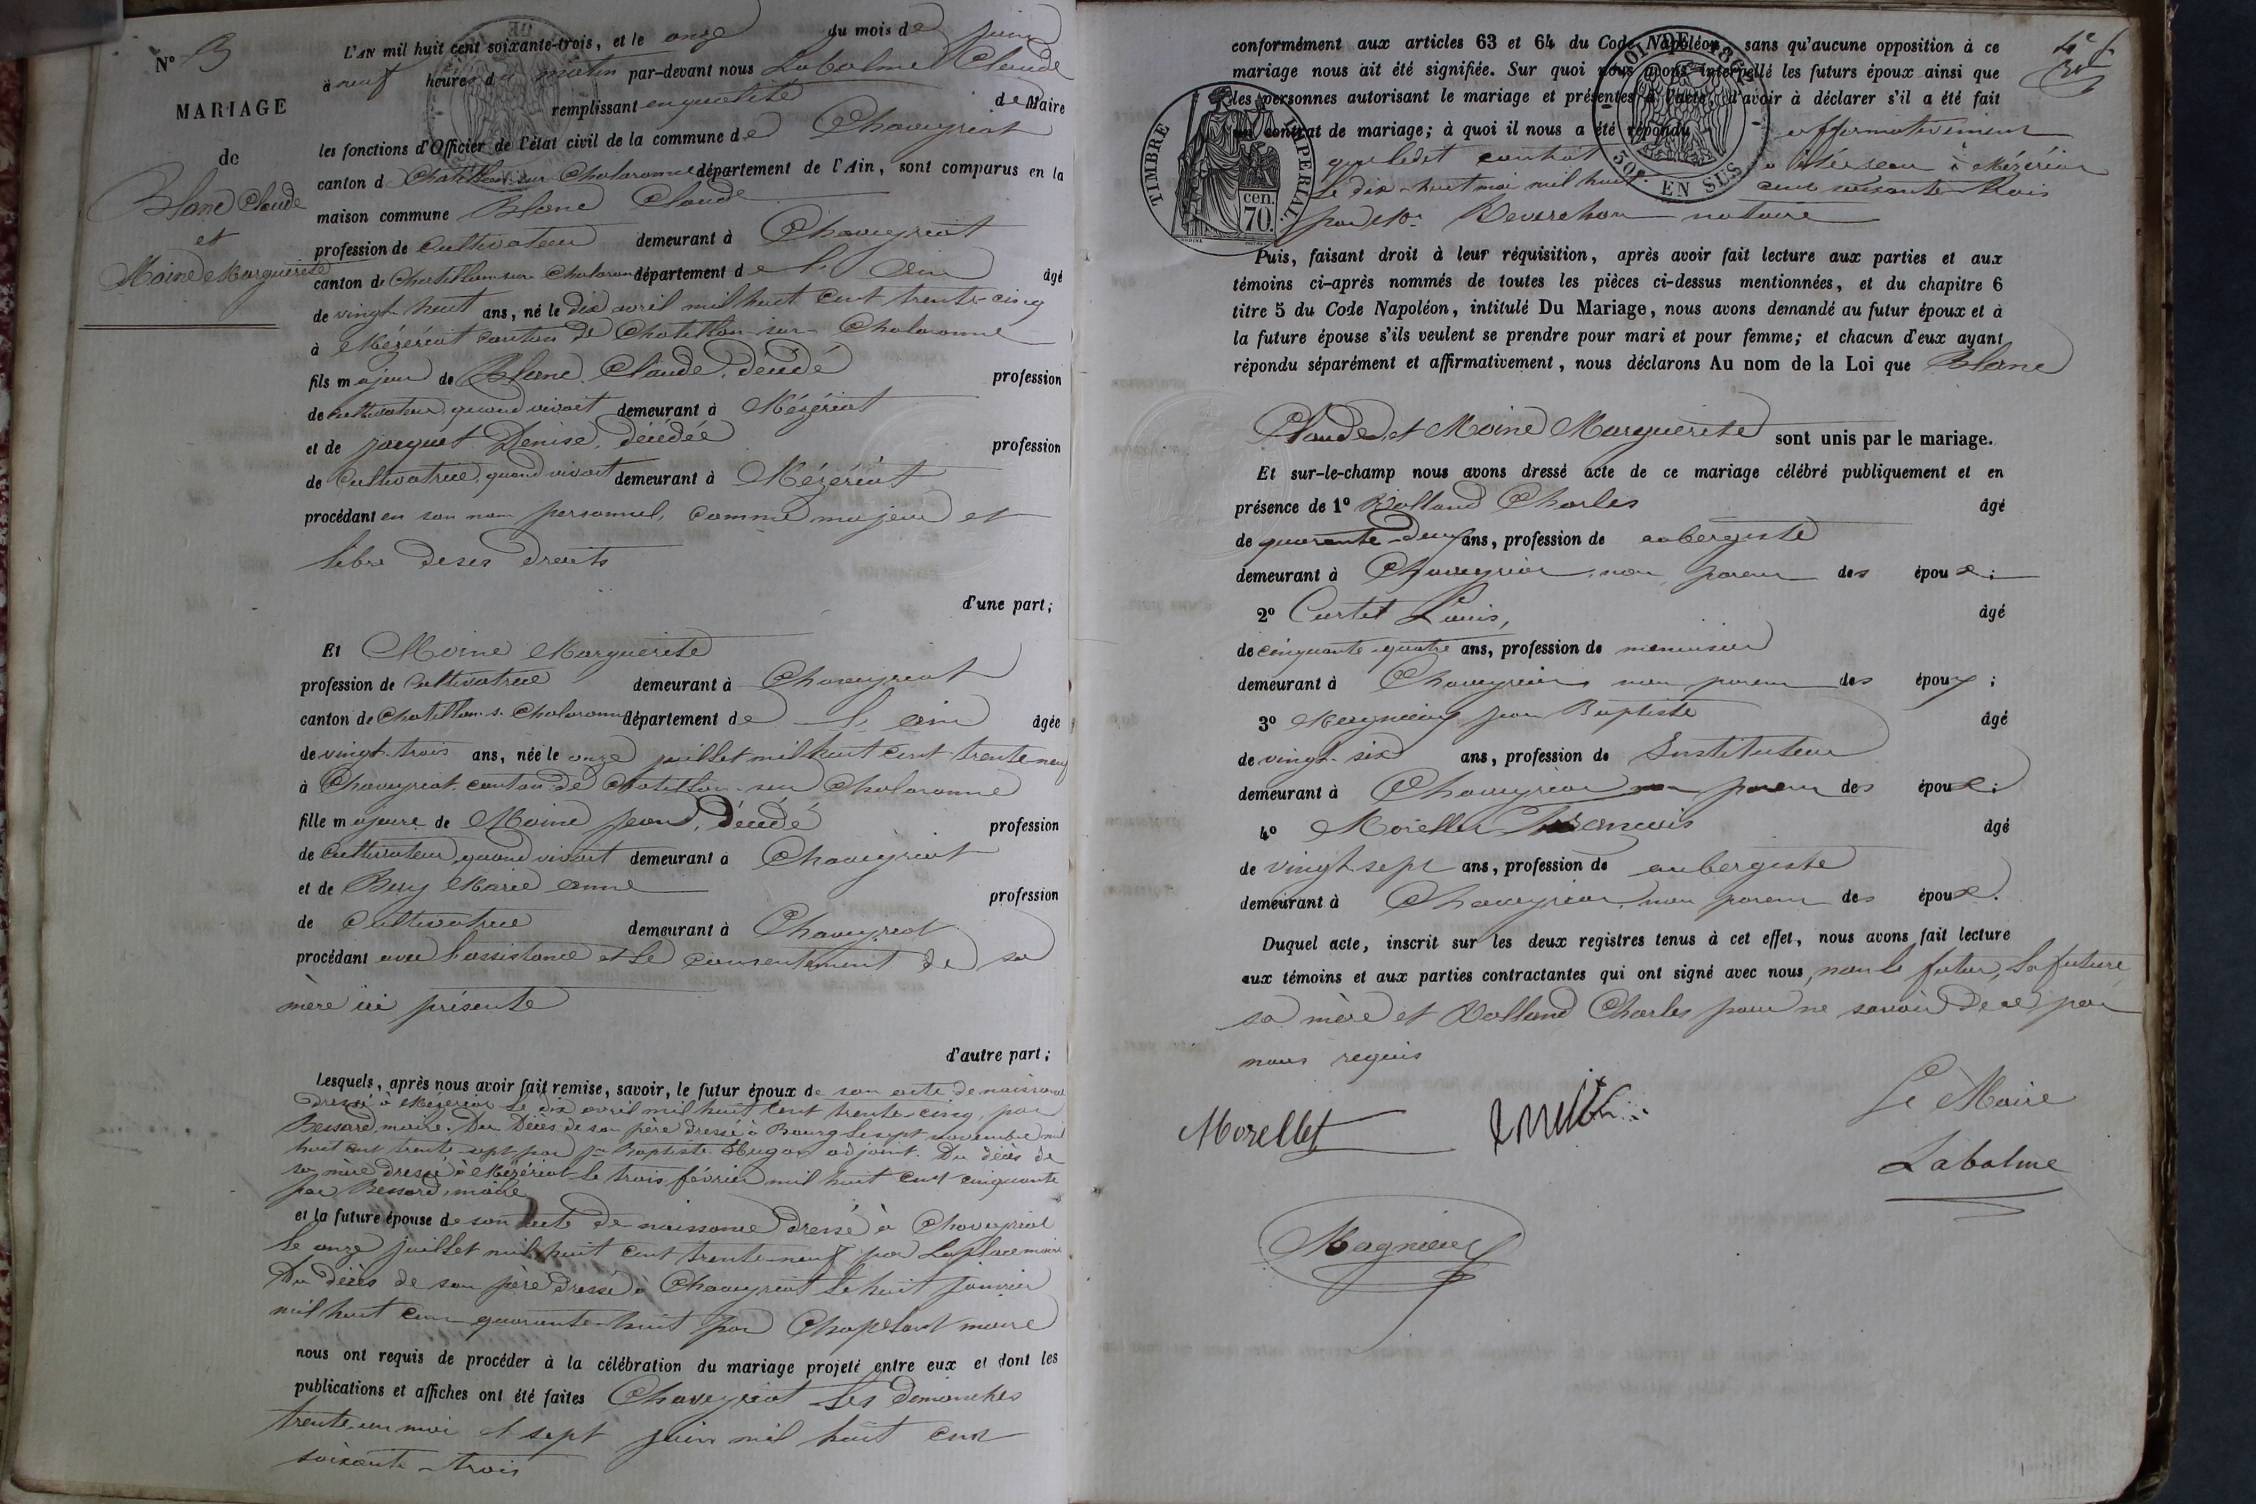 MARIAGE
de
Blanc Claude
et
Moine Marguerite
L'AN mil huit cent soixante-trois, et le onze du mois de juin
à neuf heures du matin par-devant nous Labalme Claude
remplissant en qualité de Maire
les fonctions d'Officier de l'état civil de la commune de Chaveyriat
canton de Chatillon-sur-Chalaronne département de l'Ain, sont comparus en la
maison commune Blanc Claude
profession de Cultivateur demeurant à Chaveyriat
canton de Chatillon-sur-Chalaronne département de l'Ain âgé
de vingt-huit ans, né le dix avril mil huit cent trente-cinq
à Mézériat canton de Chatillon-sur-Chalaronne
fils majeur de Blanc Claude, décédé profession
de cultivateur quand vivait demeurant à Mézériat
et de Jacquet Denise, décédée profession
de Cultivatrice quand vivait demeurant à Mézériat
procédant en son nom personnel, comme majeur et
libre de ses droits
d'une part;
Et Moine Marguerite
profession de cultivatrice demeurant à Chaveyriat
canton de Chatillon-s-Chalaronne département de l'ain âgée
de vingt-trois ans, née le onze juillet mil huit cent trente-neuf
à Chaveyriat canton de Chatillon-sur-Chalaronne
fille majeure de Moine Jean, décédé profession
de Cultivateur quand vivait demeurant à Chaveyriat
et de Bery Marie Anne profession
de Cultivatrice demeurant à Chaveyriat
procédant avec l'assistance et le consentement de sa
mère ici présente
d'autre part;
Lesquels, après nous avoir fait remise, savoir, le futur époux de son acte de naissance
dressé à Mézériat le dix avril mil huit cent trente-cinq, par
Bessard maire. Du Décès de son père dressé à Bourg le sept novembre mil
huit cent trente-sept par Jn Baptiste Hugon adjoint. Du décès de
sa mère dressé à Mézériat le trois février mil huit cent cinquante
par Bessard, maire
et la future épouse de son acte de naissance dressé à Chaveyriat
le onze juillet mil huit cent trente-neuf par Laplace maire
Du décès de son père dressé à Chaveyriat le huit janvier
mil huit cent quarante-huit par Chapeland maire
nous ont requis de procéder à la célébration du mariage projeté entre eux et dont les
publications et affiches ont été faites Chaveyriat les Dimanches
trente-un mai et sept juin mil huit cent
soixante-trois
conformément aux articles 63 et 64 du Code Napoléon, sans qu'aucune opposition à ce
mariage nous ait été signifiée. Sur quoi nous avons interpellé les futurs époux ainsi que
les personnes autorisant le mariage et présentes à l'acte, d'avoir à déclarer s'il a été fait
un contrat de mariage; à quoi il nous a été répondu affirmativement
que ledit contrat a à Mézériat
le dix-huit mai mil huit cent soixante-trois
par Mr notaire
TIMBRE IMPERIAL
70 cen.
50c. EN SUS
Puis, faisant droit à leur réquisition, après avoir fait lecture aux parties et aux
témoins ci-après nommés de toutes les pièces ci-dessus mentionnées, et du chapitre 6
titre 5 du Code Napoléon, intitulé Du Mariage, nous avons demandé au futur époux et à
la future épouse s'ils veulent se prendre pour mari et pour femme; et chacun d'eux ayant
répondu séparément et affirmativement, nous déclarons Au nom de la Loi que Blanc
Claude et Moine Marguerite sont unis par le mariage.
Et sur-le-champ nous avons dressé acte de ce mariage célébré publiquement et en
présence de 1º Rolland Charles âgé
de quarante-deux ans, profession de aubergiste
demeurant à Chaveyriat, non parent des époux;
2º Curtet Louis, âgé
de cinquante-quatre ans, profession de menuisier
demeurant à Chaveyriat non parent des époux;
3º Jean Baptiste âgé
de vingt-six ans, profession de Instituteur
demeurant à Chaveyriat non parent des époux;
4º Morellet François âgé
de vingt-sept ans, profession de aubergiste
demeurant à Chaveyriat, non parent des époux.
Duquel acte, inscrit sur les deux registres tenus à cet effet, nous avons fait lecture
aux témoins et aux parties contractantes qui ont signé avec nous, non le futur, la future
sa mère et Rolland Charles pour ne savoir de ce par
nous requis
Morellet
Le Maire
Labalme